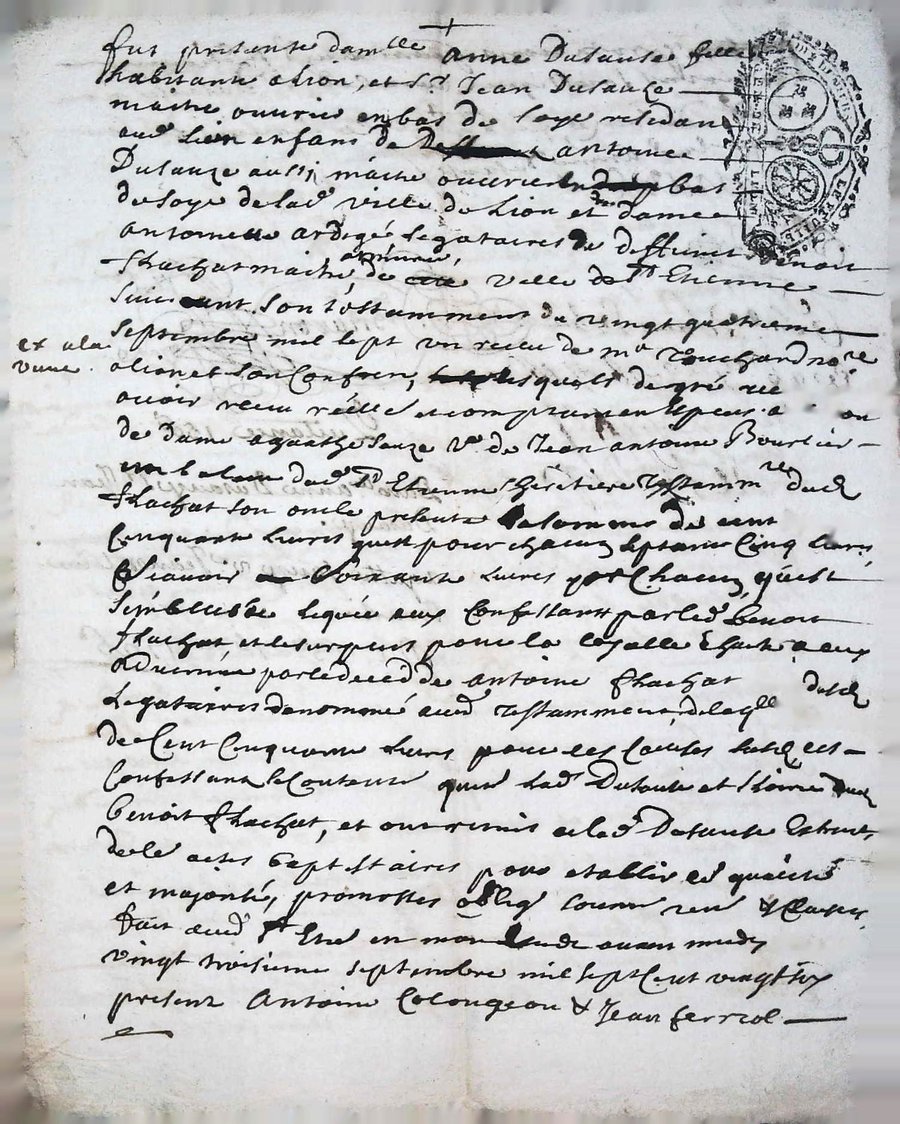 fut presente damlle Anne Dusauze fille
habitante a Lion, et Sr. Jean Dusauze
maitre ouvrier en bas de soye residan
aud Lion enfans de antoine
Dusauze aussi maitre ouvrier en bas
de soye de lad ville de Lion et dame
antoinette ardegé legataires de deffunt Benoit
flachat maitre armurier, de ville de St Etienne
suivant son testamment du vingt quatrieme
septembre mil sept un receu de me Touchard nore
a lion et son Confrere, lesquels de gré
avoir receu réélle et comptan
de Dame agathe Sauze ve. de Jean antoine Bourlier
dud St Etienne heritiere testammre dud
flachat son oncle presente la somme de cent
Cinquante livres quest pour chacun septante Cinq livres
scavoir soixante livres par Chacun, qu'est
semblable leguée aux Confessants par led benoit
flachat, et le surplus pour la eux
advenüe par le deced de antoine flachat desd
Legataires denommé aud testamment, de laqlle
de Cent Cinquante livres pour les Causes susd et
Confessants se Contente quitté lad Dusauze et l'hoirie dud
benoit flachat, et ont remis a lad Dusauze Extraits
de le actes baptistaires pour etablir es qualités
et majorité, promettes oblig soum ren & Clauses
fait aud St Etne en mon Etude avant midy
vingt troisieme septembre mil sept Cent vingt six
present Antoine Colongeon & Jean ferriol